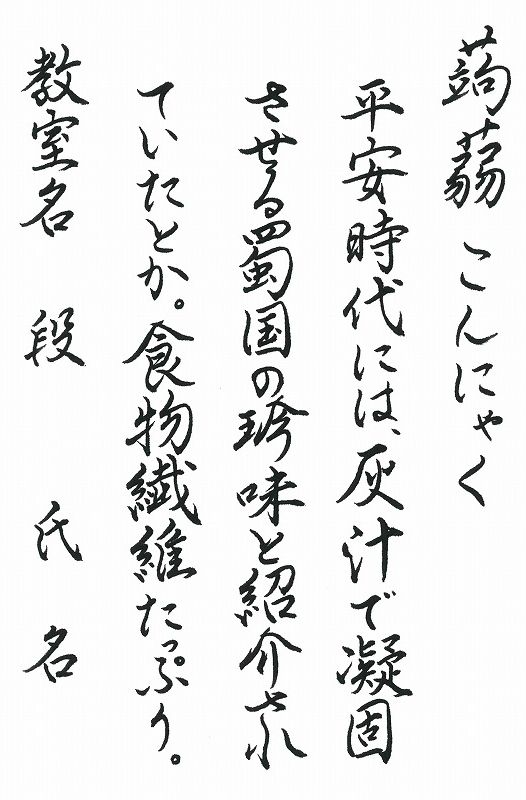 蒟蒻 こんにゃく
平安時代には、灰汁で凝固
させる蜀国の珍味と紹介され
ていたとか。食物繊維たっぷり。
教室名 段 氏名